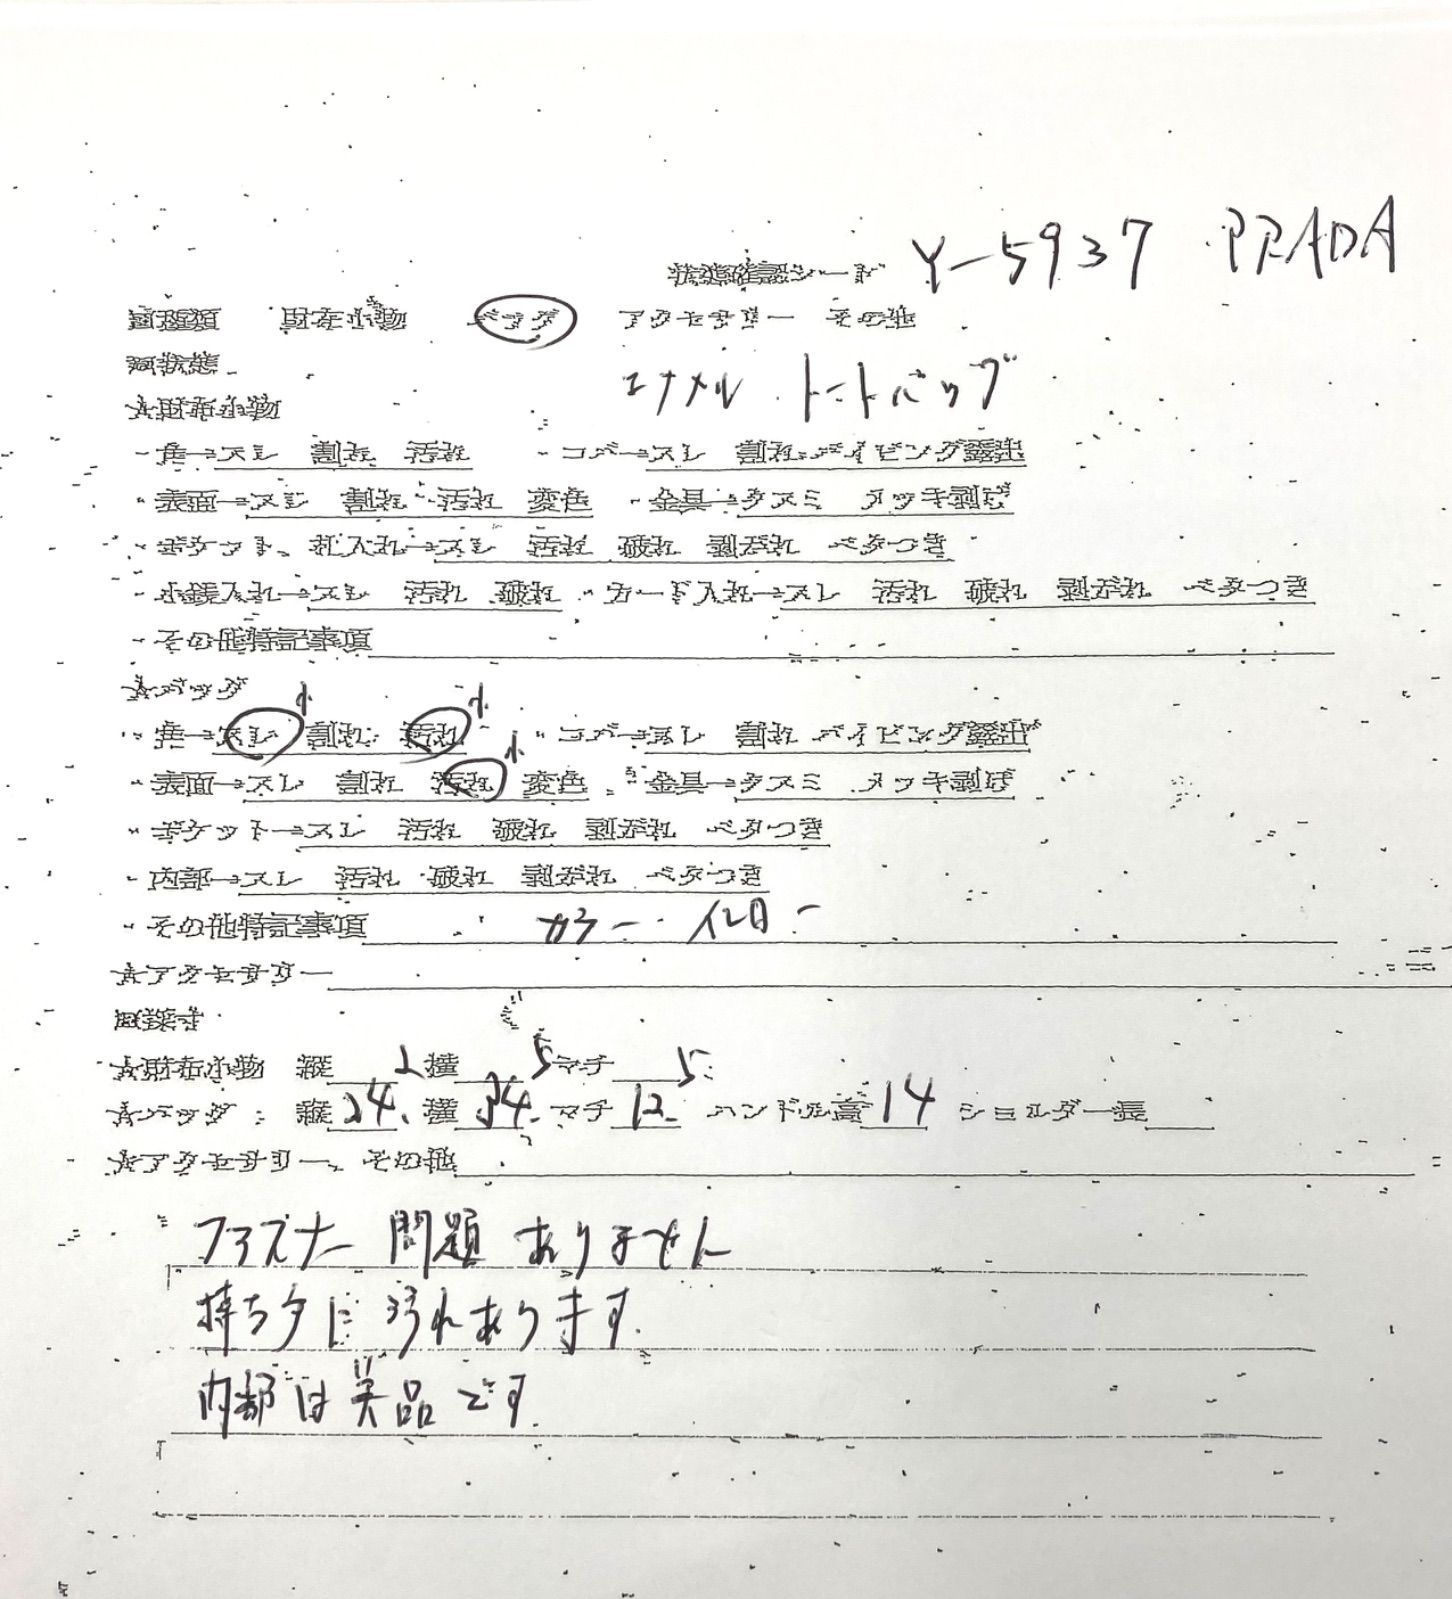 状態確認シート Y-5937 PRADA
財布小物 バッグ アクセサリー その他
状態
エナメル トートバッグ
☆財布小物
・角→スレ 割れ 汚れ ・コバ→スレ 割れ パイピング露出
・表面→スレ 割れ 汚れ 変色 ・金具→クスミ メッキ剥げ
・ポケット、札入れ→スレ 汚れ 破れ 型崩れ ベタつき
・小銭入れ→スレ 汚れ 破れ ・カード入れ→スレ 汚れ 破れ ベタつき
・その他特記事項
☆バッグ
・角→スレ 小 割れ 汚れ 小 ・コバ→スレ 割れ パイピング露出
・表面→スレ 割れ 汚れ 小 変色 ・金具→クスミ メッキ剥げ
・ポケット→スレ 汚れ 破れ ベタつき
・内部→スレ 汚れ 破れ ベタつき
・その他特記事項 カラー
☆アクセサリー
採寸
☆財布小物 縦 横 マチ
☆バッグ 縦24 横34 マチ12 ハンドル高14 ショルダー長
☆アクセサリー、その他
ファスナー 問題 ありません
持ち手に 汚れあります.
内部は美品です.